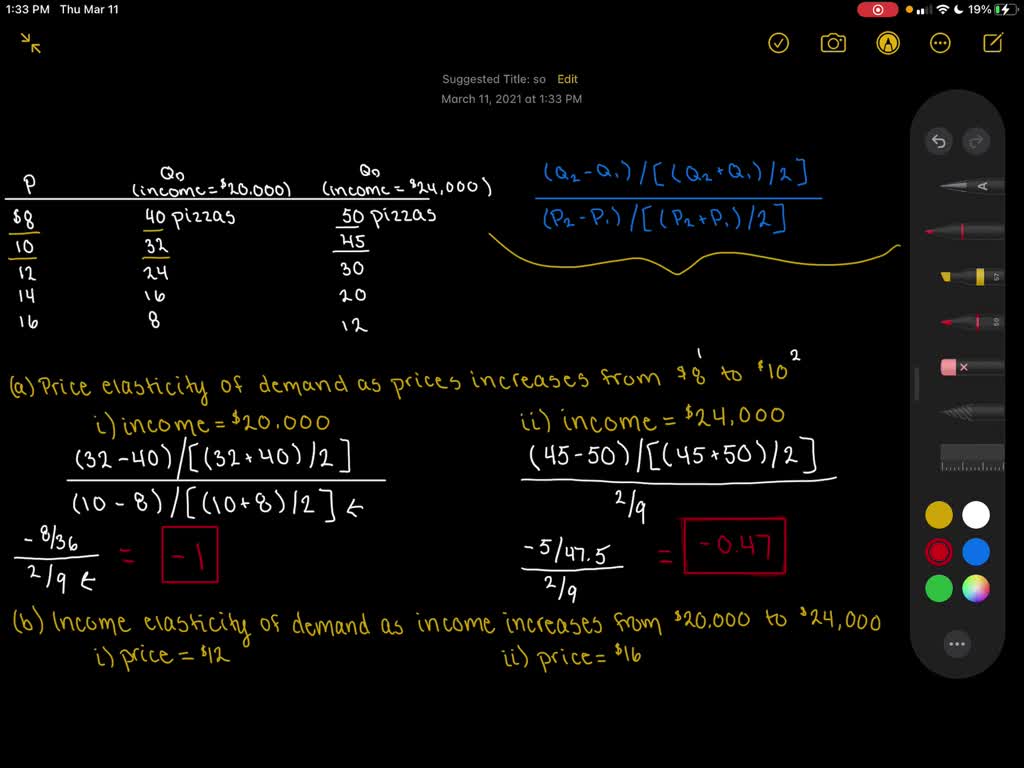 1:33 PM Thu Mar 11 19%
Suggested Title: so Edit
March 11, 2021 at 1:33 PM
P QD (income=$20.000) QD (income=$24,000)
$8 40 pizzas 50 pizzas
10 32 45
12 24 30
14 16 20
16 8 12
(Q2-Q1)/[(Q2+Q1)/2]
(P2-P1)/[(P2+P1)/2]
(a) Price elasticity of demand as prices increases from $8 to $10
1 2
i) income=$20.000
(32-40)/[(32+40)/2]
(10-8)/[(10+8)/2] ←
-8/36
2/9 ←
= -1
ii) income=$24,000
(45-50)/[(45+50)/2]
2/9
-5/47.5
2/9
= -0.47
(b) Income elasticity of demand as income increases from $20.000 to $24,000
i) price=$12
ii) price=$16
A
57
50